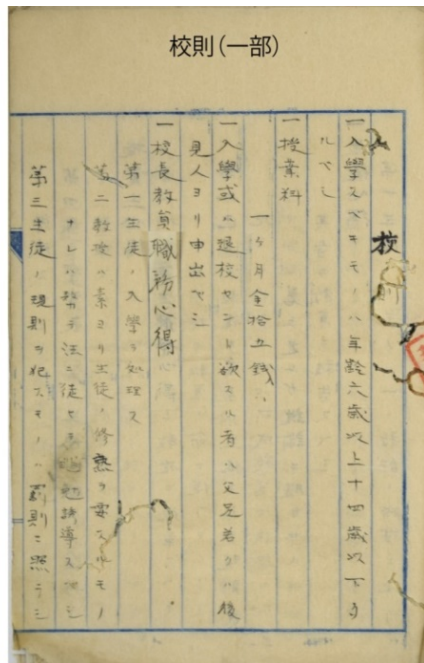 校則（一部）
校則
一入學スベキモノハ年齢六歳以上十四歳以下タ
ルベシ
一授業料
一ケ年金拾五錢
一入學或ハ退校セント欲スル者ハ父兄若クハ後
見人ヨリ申出ベシ
一校長教員職務心得
第一生徒ノ入學ヲ処理ス
第二教授ハ素ヨリ生徒ノ修熟ヲ要スルモノ
ナレハ勉テ法ニ徒ヒ 勉誘導スベシ
第三生徒ノ規則ヲ犯スモノハ罰則ニ照ラシ